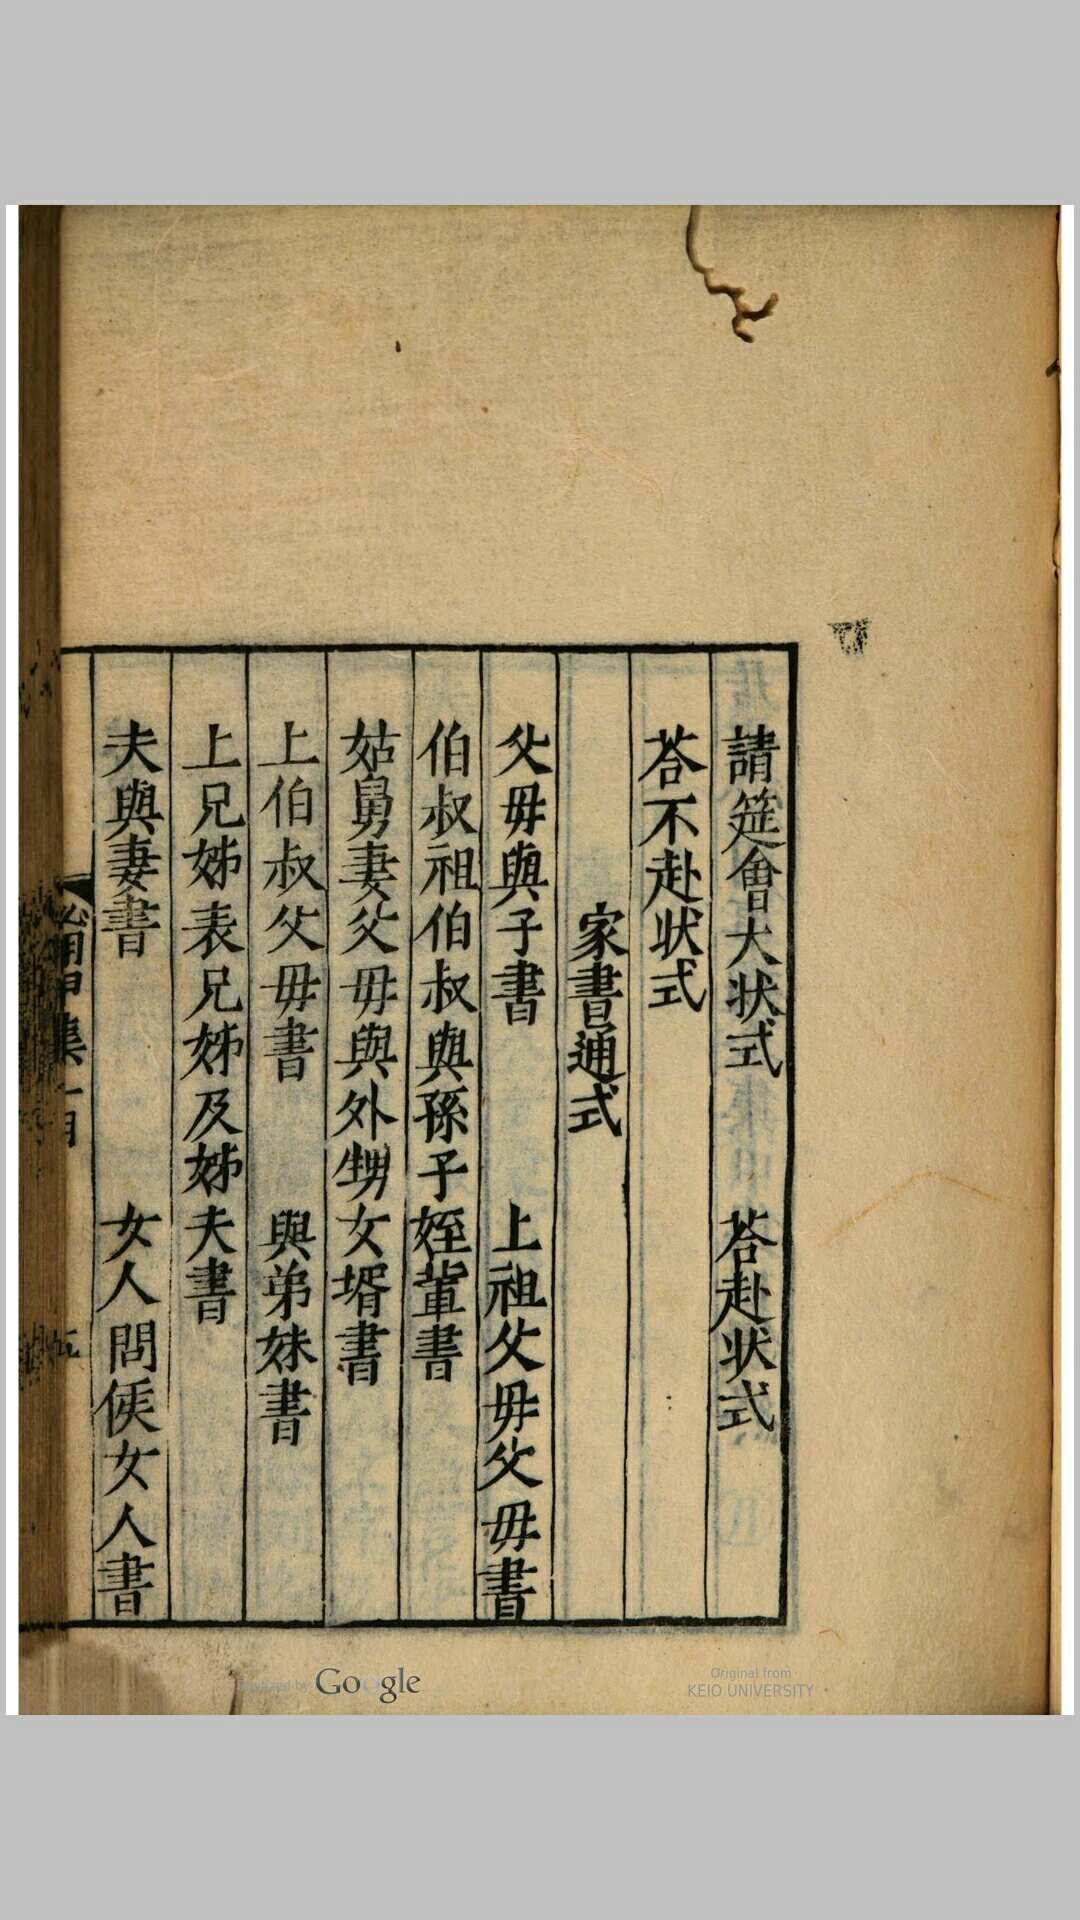 請筵會大状式 荅赴状式
荅不赴状式
家書通式
父毋與子書 上祖父毋父毋書
伯叔祖伯叔與孫子姪軰書
姑舅妻父毋與外甥女壻書
上伯叔父毋書 與弟妹書
上兄姊表兄姊及姊夫書
夫與妻書 女人問候女人書
甲集一目
五
Digitized by Google
Original from
KEIO UNIVERSITY